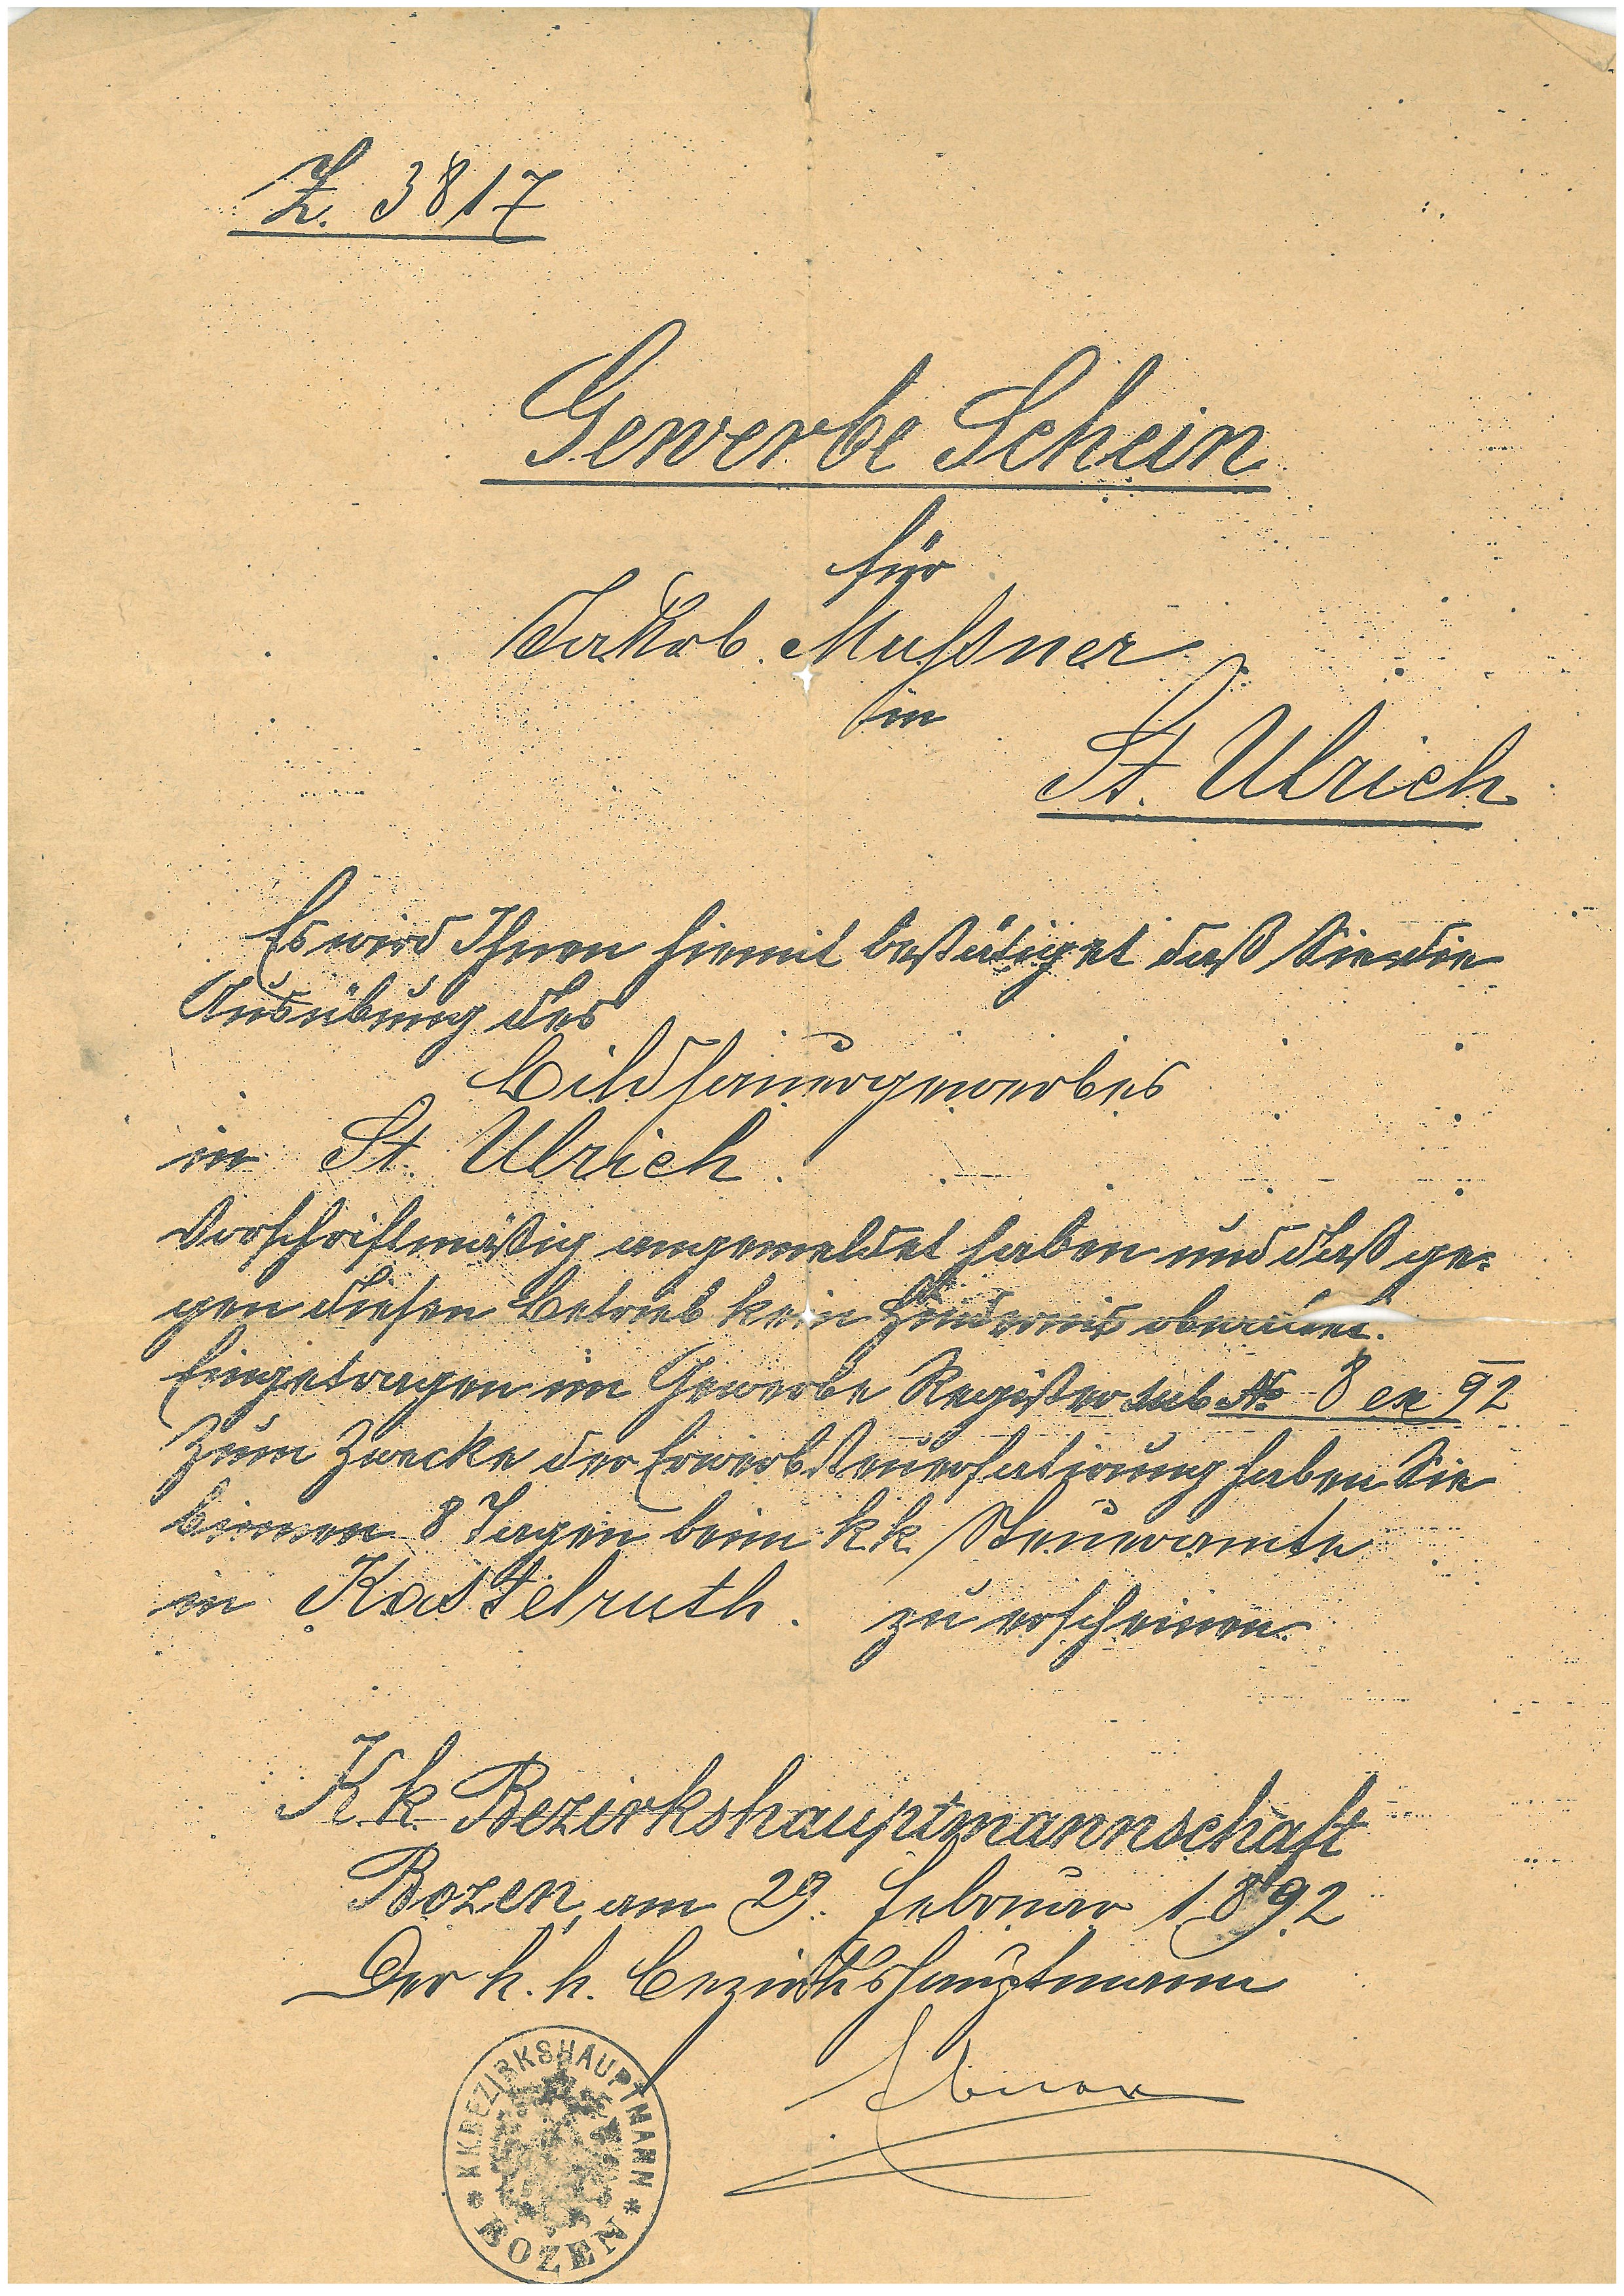 Z. 3817
Gewerbe Schein
für
Jakob Mussner
in
St. Ulrich
Es wird Ihnen hiemit bestätiget daß Sie die
Ausübung des
Bildhauergewerbes
in St. Ulrich.
vorschriftmäßig angemeldet haben und daß ge=
gen diesen Betrieb kein Hindernis obwaltet.
Eingetragen im Gewerbe Register sub No 8 ex 92
Zum Zwecke der Erwerbsteuerfatirung haben Sie
binnen 8 Tagen beim k k Steueramte
in Kastelruth. zu erscheinen.
K. k. Bezirkshauptmannschaft
Bozen, am 29. Februar 1892
Der k. k. Bezirkshauptmann
Ebner
K.K. BEZIRKSHAUPTMANN
* BOZEN *